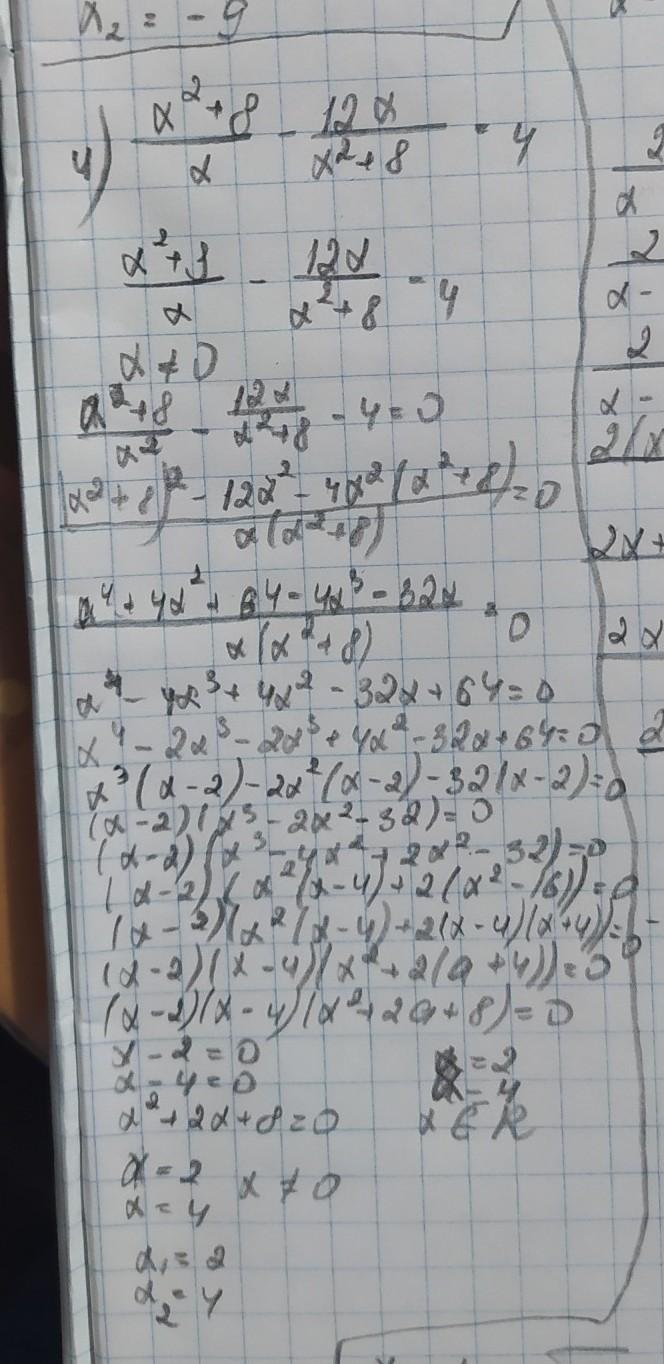 x₂ = -9
4) (x² + 8)/x - 12x/(x² + 8) = 4
(x² + 1)/x - 12x/(x² + 8) = 4
x ≠ 0
(x² + 8)/x² - 12x/(x² + 8) - 4 = 0
((x² + 8)² - 12x² - 4x²(x² + 8))/(x(x² + 8)) = 0
(x⁴ + 4x² + 64 - 4x³ - 32x)/(x(x² + 8)) = 0
x⁴ - 4x³ + 4x² - 32x + 64 = 0
x⁴ - 2x³ - 2x³ + 4x² - 32x + 64 = 0
x³(x - 2) - 2x²(x - 2) - 32(x - 2) = 0
(x - 2)(x³ - 2x² - 32) = 0
(x - 2)(x³ - 4x² + 2x² - 32) = 0
(x - 2)(x²(x - 4) + 2(x² - 16)) = 0
(x - 2)(x²(x - 4) + 2(x - 4)(x + 4)) = 0
(x - 2)(x - 4)(x² + 2(a + 4)) = 0
(x - 2)(x - 4)(x² + 2a + 8) = 0
x - 2 = 0 x = 2
x - 4 = 0 x = 4
x² + 2x + 8 = 0 x ∈ R
x = 2
x = 4 x ≠ 0
x₁ = 2
x₂ = 4
2
x
2
x -
2
x -
2(x
2x +
2x
2